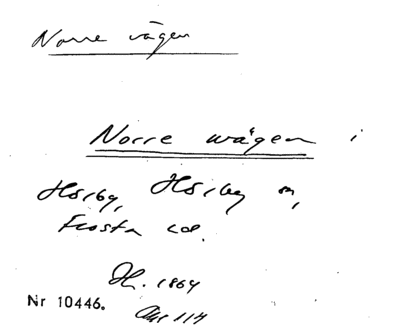 Norre vägen
Norre wägen i
Hörby, Hörby sn,
Frosta hd.
H. 1864
Nr 10446.
Akt 114